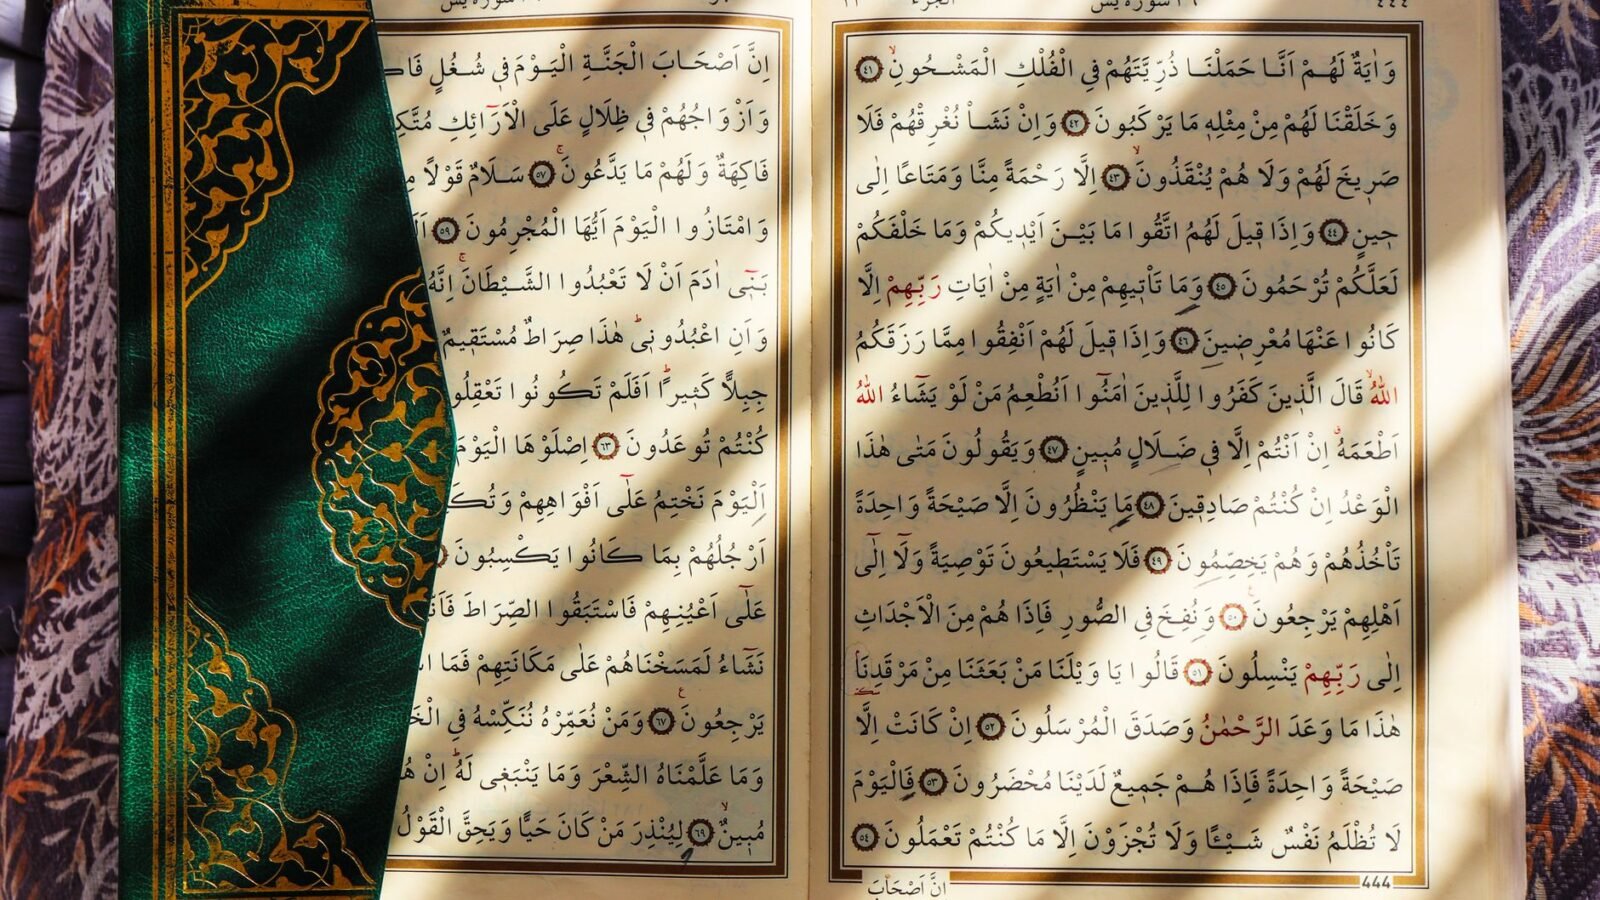 ٤٤٤
٣٦ سورة يس
الجزء ٢٣
وَاٰيَةٌ لَهُمْ اَنَّا حَمَلْنَا ذُرِّيَّتَهُمْ فِي الْفُلْكِ الْمَشْحُونِۙ ﴿٤١﴾
وَخَلَقْنَا لَهُمْ مِنْ مِثْلِه۪ مَا يَرْكَبُونَ ﴿٤٢﴾ وَاِنْ نَشَأْ نُغْرِقْهُمْ فَلَا
صَر۪يخَ لَهُمْ وَلَا هُمْ يُنْقَذُونَۙ ﴿٤٣﴾ اِلَّا رَحْمَةً مِنَّا وَمَتَاعًا اِلٰى
ح۪ينٍ ﴿٤٤﴾ وَاِذَا ق۪يلَ لَهُمُ اتَّقُوا مَا بَيْنَ اَيْد۪يكُمْ وَمَا خَلْفَكُمْ
لَعَلَّكُمْ تُرْحَمُونَ ﴿٤٥﴾ وَمَا تَأْت۪يهِمْ مِنْ اٰيَةٍ مِنْ اٰيَاتِ رَبِّهِمْ اِلَّا
كَانُوا عَنْهَا مُعْرِض۪ينَ ﴿٤٦﴾ وَاِذَا ق۪يلَ لَهُمْ اَنْفِقُوا مِمَّا رَزَقَكُمُ
اللّٰهُۙ قَالَ الَّذ۪ينَ كَفَرُوا لِلَّذ۪ينَ اٰمَنُٓوا اَنُطْعِمُ مَنْ لَوْ يَشَٓاءُ اللّٰهُ
اَطْعَمَهُۗ اِنْ اَنْتُمْ اِلَّا ف۪ي ضَلَالٍ مُب۪ينٍ ﴿٤٧﴾ وَيَقُولُونَ مَتٰى هٰذَا
الْوَعْدُ اِنْ كُنْتُمْ صَادِق۪ينَ ﴿٤٨﴾ مَا يَنْظُرُونَ اِلَّا صَيْحَةً وَاحِدَةً
تَأْخُذُهُمْ وَهُمْ يَخِصِّمُونَ ﴿٤٩﴾ فَلَا يَسْتَط۪يعُونَ تَوْصِيَةً وَلَٓا اِلٰٓى
اَهْلِهِمْ يَرْجِعُونَ۟ ﴿٥٠﴾ وَنُفِخَ فِي الصُّورِ فَاِذَا هُمْ مِنَ الْاَجْدَاثِ
اِلٰى رَبِّهِمْ يَنْسِلُونَ ﴿٥١﴾ قَالُوا يَا وَيْلَنَا مَنْ بَعَثَنَا مِنْ مَرْقَدِنَا
هٰذَا مَا وَعَدَ الرَّحْمٰنُ وَصَدَقَ الْمُرْسَلُونَ ﴿٥٢﴾ اِنْ كَانَتْ اِلَّا
صَيْحَةً وَاحِدَةً فَاِذَا هُمْ جَم۪يعٌ لَدَيْنَا مُحْضَرُونَ ﴿٥٣﴾ فَالْيَوْمَ
لَا تُظْلَمُ نَفْسٌ شَيْـًٔا وَلَا تُجْزَوْنَ اِلَّا مَا كُنْتُمْ تَعْمَلُونَ ﴿٥٤﴾
444
اِنَّ اَصْحَابَ
سورة يس
اِنَّ اَصْحَابَ الْجَنَّةِ الْيَوْمَ ف۪ي شُغُلٍ
وَاَزْوَاجُهُمْ ف۪ي ظِلَالٍ عَلَى الْاَرَٓائِكِ
فَاكِهَةٌ وَلَهُمْ مَا يَدَّعُونَۚ ﴿٥٧﴾ سَلَامٌ قَوْلًا
وَامْتَازُوا الْيَوْمَ اَيُّهَا الْمُجْرِمُونَ ﴿٥٩﴾
بَن۪ٓي اٰدَمَ اَنْ لَا تَعْبُدُوا الشَّيْطَانَۚ اِنَّهُ
وَاَنِ اعْبُدُون۪يۜ هٰذَا صِرَاطٌ مُسْتَق۪يمٌ
جِبِلًّا كَث۪يرًاۜ اَفَلَمْ تَكُونُوا
كُنْتُمْ تُوعَدُونَ ﴿٦٣﴾ اِصْلَوْهَا الْيَوْمَ
اَلْيَوْمَ نَخْتِمُ عَلٰٓى اَفْوَاهِهِمْ
اَرْجُلُهُمْ بِمَا كَانُوا يَكْسِبُونَ
عَلٰٓى اَعْيُنِهِمْ فَاسْتَبَقُوا الصِّرَاطَ
نَشَٓاءُ لَمَسَخْنَاهُمْ عَلٰى مَكَانَتِهِمْ فَمَا
يَرْجِعُونَ۟ ﴿٦٧﴾ وَمَنْ نُعَمِّرْهُ نُنَكِّسْهُ فِي
وَمَا عَلَّمْنَاهُ الشِّعْرَ وَمَا يَنْبَغ۪ي لَهُۜ اِنْ
مُب۪ينٌۙ ﴿٦٩﴾ لِيُنْذِرَ مَنْ كَانَ حَيًّا وَيَحِقَّ الْقَوْلُ